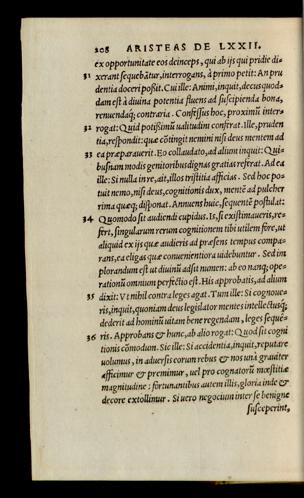 208 ARISTEAS DE LXXII.
ex opportunitate eos deinceps, qui ab ijs qui pridie di-
31 xerant sequebātur, interrogans, à primo petit: An pru
dentia doceri possit. Cui ille: Animi, inquit, decus quod-
dam est à diuina potentia fluens ad suscipienda bona,
renuendaq́; contraria. Confessus hoc, proximū inter-
32 rogat: Quid potissimū ualitudini conferat. Ille, pruden
tia, respondit: quæ cōtingit nemini nisi deus mentem ad
33 ea præparauerit. Eo collaudato, ad alium inquit: Qui-
busnam modis genitoribus dignas gratias referat. Ad ea
ille: Si nulla in re, ait, illos tristitia afficias. Sed hoc po-
tuit nemo, nisi deus, cognitionis dux, mentē ad pulcher
rima quæq; disponat. Annuens huic, sequentē postulat:
34 Quomodo sit audiendi cupidus. Is, si existimaueris, re-
fert, singularum rerum cognitionem tibi utilem fore, ut
aliquid ex ijs quæ audieris ad præsens tempus compa-
rans, ea eligas quæ conuenientiora uidebuntur. Sed im
plorandum est ut diuinū adsit numen: ab eo nanq; ope-
rationū omnium perfectio est. His approbatis, ad alium
35 dixit: Vt nihil contra leges agat. Tum ille: Si cognoue-
ris, inquit, quoniam deus legislator mentes intellectusq́;
dederit ad hominū uitam bene regendam, leges sequē-
36 ris. Approbans & hunc, ab alio rogat: Quod sit cogni
tionis cōmodum. Sic ille: Si accidentia, inquit, reputare
uolumus, in aduersis eorum rebus & nos unà grauiter
afficimur & premimur, uel pro cognatorū mœstitiæ
magnitudine: fortunantibus autem illis, gloria inde &
decore extollimur. Si uero negocium inter se benigne
susceperint,